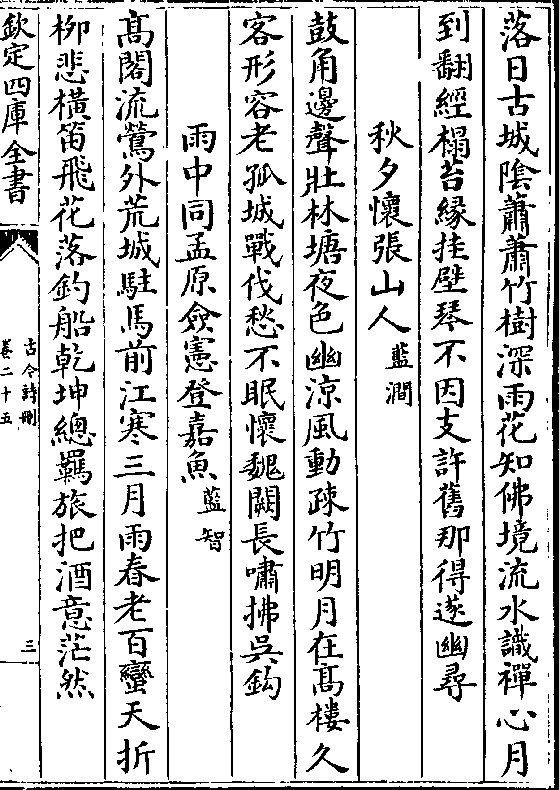 落日古城陰蕭蕭竹樹深雨花知佛境流水識禪心月
到翻經榻苔緣挂壁琴不因支許舊那得遂幽尋
秋夕懷張山人 藍澗
鼓角邊聲壯林塘夜色幽涼風動疎竹明月在髙樓久
客形容老孤城戰伐愁不眠懷魏闕長嘯拂吳鈎
雨中同孟原僉憲登嘉魚 藍智
髙閣流鶯外荒城駐馬前江寒三月雨春老百蠻天折
柳悲横笛飛花落釣船乾坤總羈旅把酒意茫然
欽定四庫全書
古今詩刪
卷二十五
三